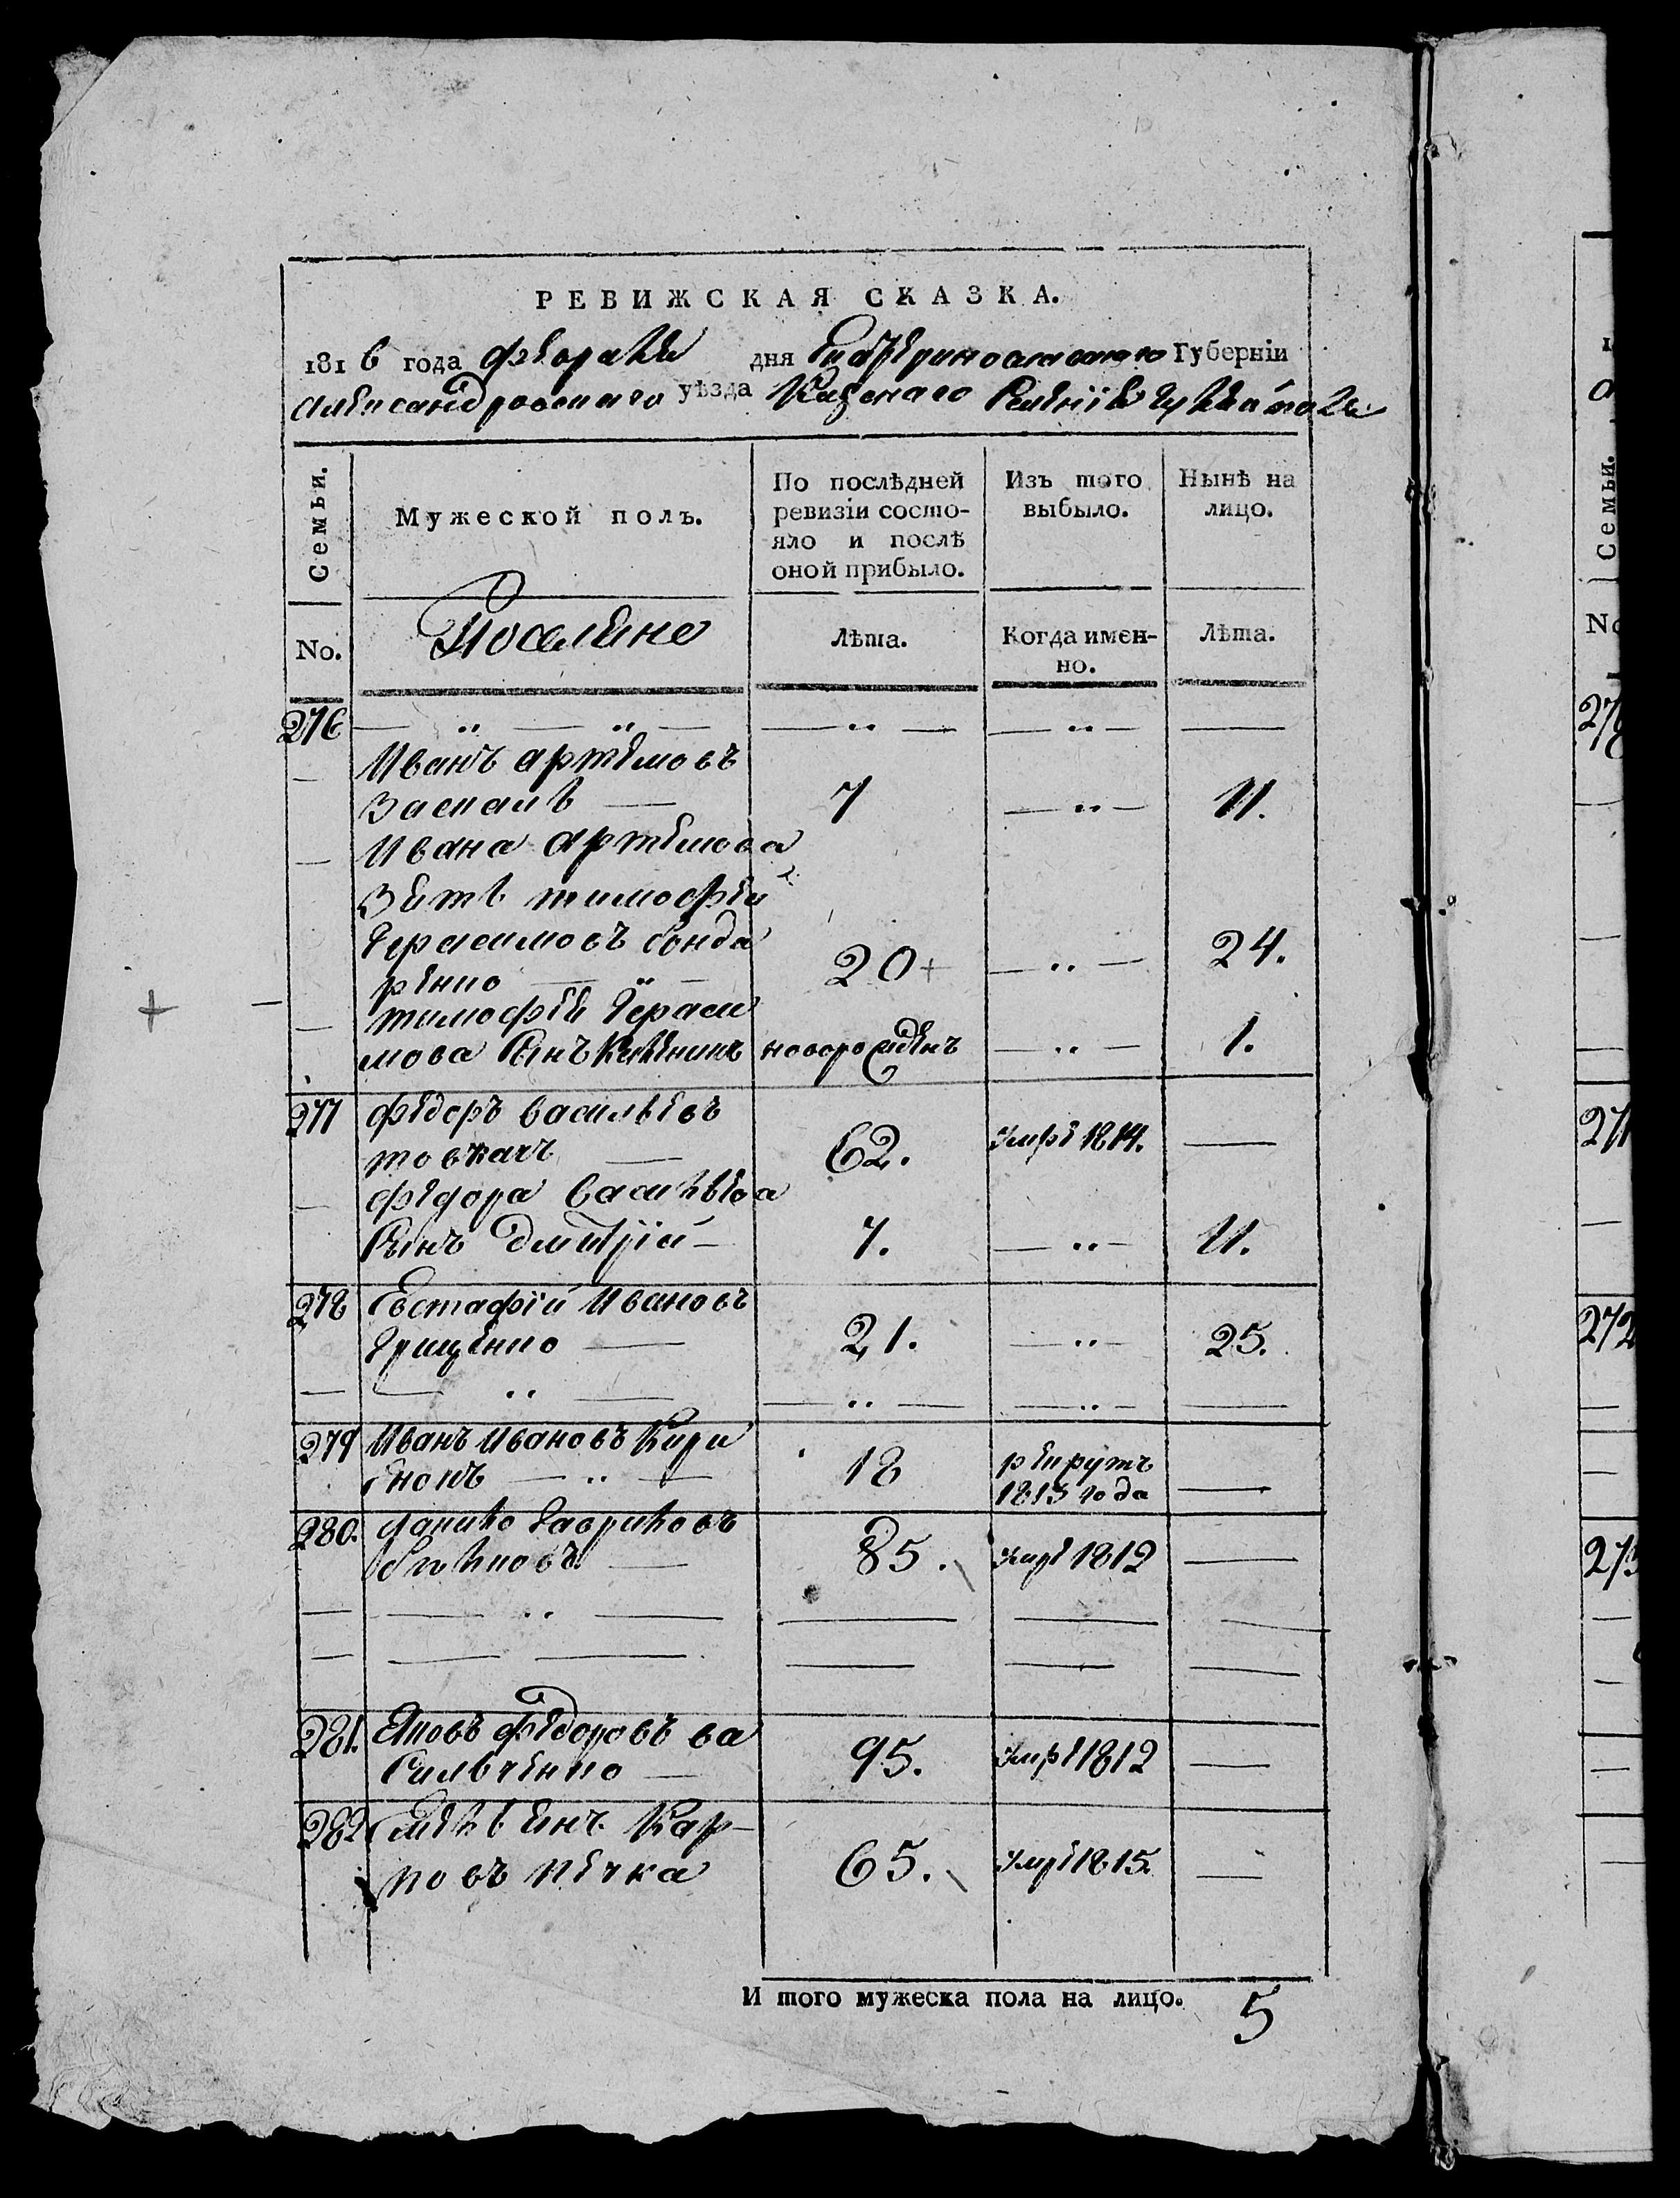 РЕВИЖСКАЯ СКАЗКА.
1816 года февраля дня Екатеринославской Губерніи
Александровскаго уѣзда Казенаго Селенія
Семьи.
Мужеской полъ.
По послѣдней ревизіи состо-
яло и послѣ
оной прибыло.
Изъ того
выбыло.
Нынѣ на
лицо.
No.
Поселяне
Лѣта.
Когда имен-
но.
Лѣта.
276
Иванъ артемовъ
7 11.
Ивана Артемова
Зять тимофей 2.
Герасимовъ бонда
ренко 20+ 24.
тимофея Гераси
мова Сынъ новорожденъ 1.
277 федоръ васильевъ
товкачъ 62. умре 1814.
федора васильева
Сынъ дмитрій 7. 11.
278 Евстафій Ивановъ
Грищенко 21. 25.
279 Иванъ Ивановъ Кири
енокъ 18 рекрутъ
1813 года
280. данило Гавриловъ
85. умре 1812
281. Яковъ федоровъ ва
сильченко 95. умре 1812
282 Емельянъ Кар-
повъ печка 65. умре 1815.
И того мужеска пола на лицо. 5
1
Семьи.
No
270
271
272
273